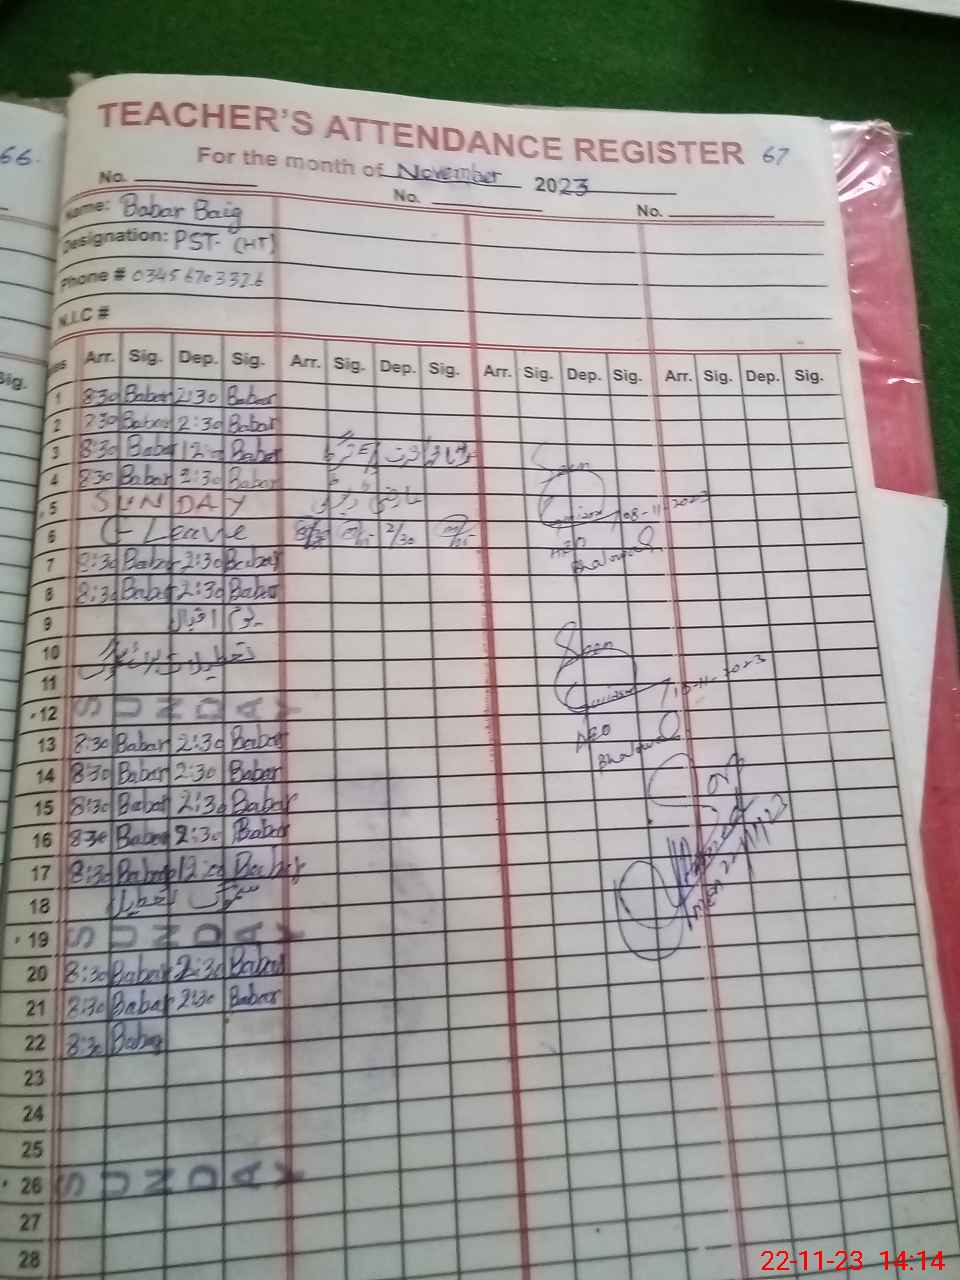 66.
TEACHER'S ATTENDANCE REGISTER 67
For the month of November 2023
No. No. No.
Name: Babar Baig
Designation: PST- (HT)
Phone # 0345 6703326
N.I.C #
Sig.
Arr. Sig. Dep. Sig. Arr. Sig. Dep. Sig. Arr. Sig. Dep. Sig. Arr. Sig. Dep. Sig.
1 8:30 Babar 2:30 Babar
2 Babar 2:30 Babar
3 8:30 Babar 12:00 Babar
4 8:30 Babar 2:30 Babar Seen
5 SUNDAY 08-11-2023
6 C-Leave 2/30 AEO
7 8:30 Babar 2:30 Babar Bhalwal
8 8:30 Babar 2:30 Babar
9 یوم اقبال
10 Seen
11
12 SUNDAY
13 8:30 Babar 2:30 Babar AEO
14 8:30 Babar 2:30 Babar Bhalwal
15 8:30 Babar 2:30 Babar
16 8:30 Babar 2:30 Babar
17 8:30 Babar 12:00 Babar
18
19 SUNDAY
20 8:30 Babar 2:30 Babar
21 8:30 Babar 2:30 Babar
22 8:30 Babar
23
24
25
26 SUNDAY
27
28
22-11-23 14:14